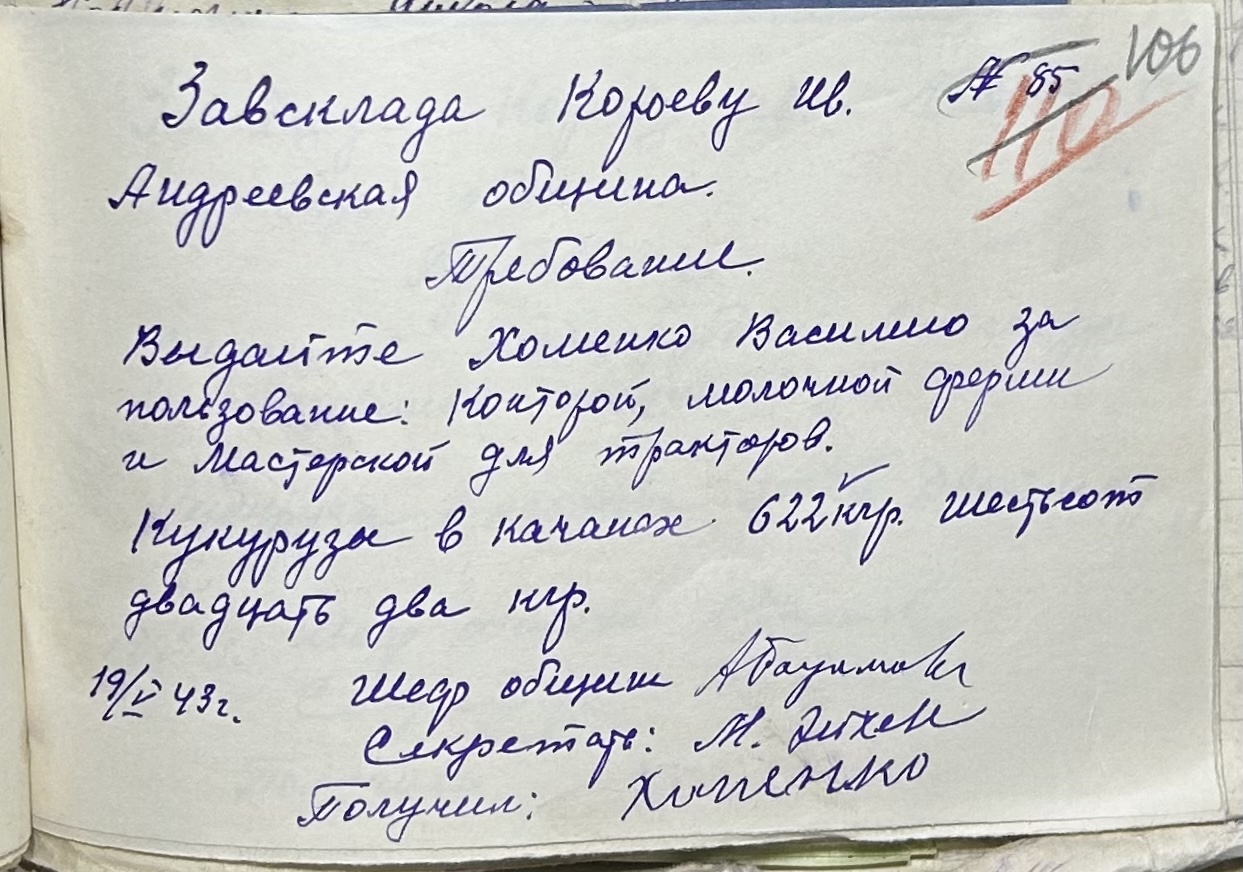 106
Завсклада Короеву Ив. № 85
110
Андреевская община.
Требование.
Выдайте Хоменко Василию за
пользование: Конторой, молочной фермы
и мастерской для тракторов.
Кукурузы в качанах 622 кгр. шестьсот
двадцать два кгр.
19/V 43 г. Шеф общины
Секретарь: М.
Получил: Хоменко